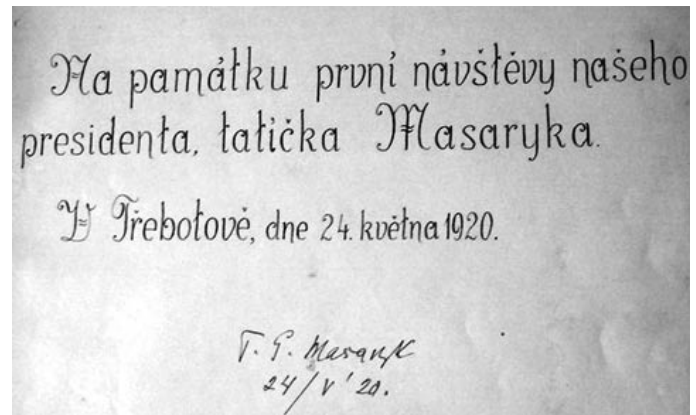 Na památku první návštěvy našeho
presidenta, tatíčka Masaryka.
V Třebotově, dne 24. května 1920.
T. G. Masaryk
24/V '20.